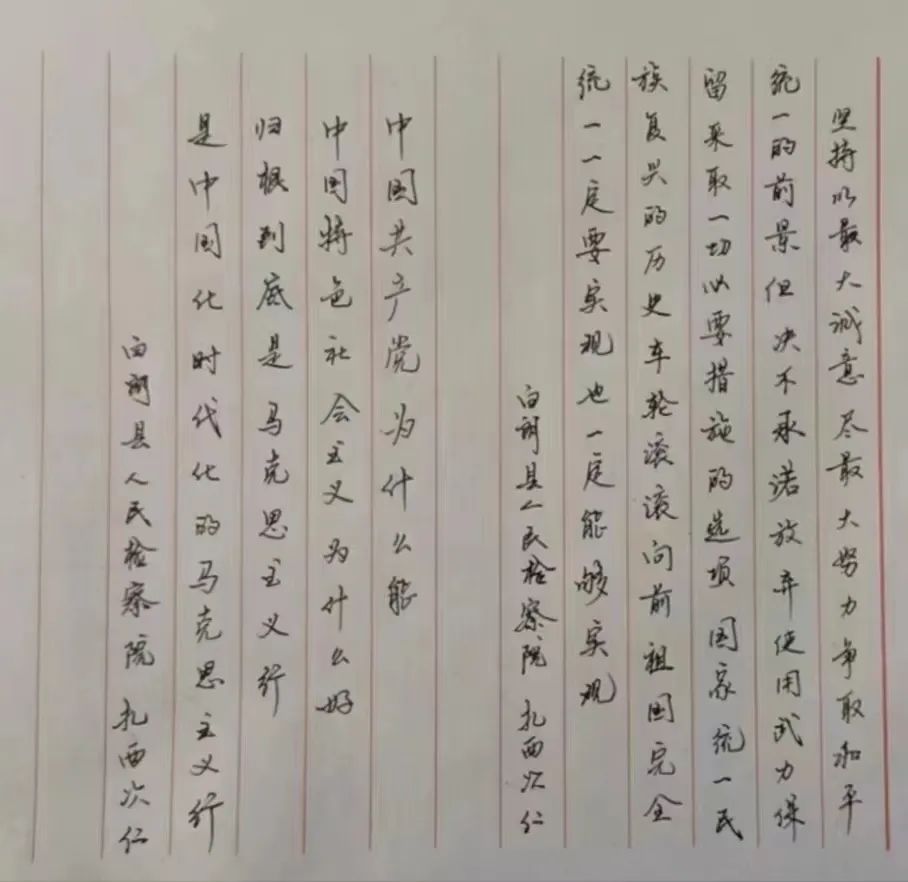 坚持以最大诚意尽最大努力争取和平
统一的前景但决不承诺放弃使用武力保
留采取一切必要措施的选项国家统一民
族复兴的历史车轮滚滚向前祖国完全
统一一定要实现也一定能够实现
白朗县人民检察院 扎西次仁
中国共产党为什么能
中国特色社会主义为什么好
归根到底是马克思主义行
是中国化时代化的马克思主义行
白朗县人民检察院 扎西次仁